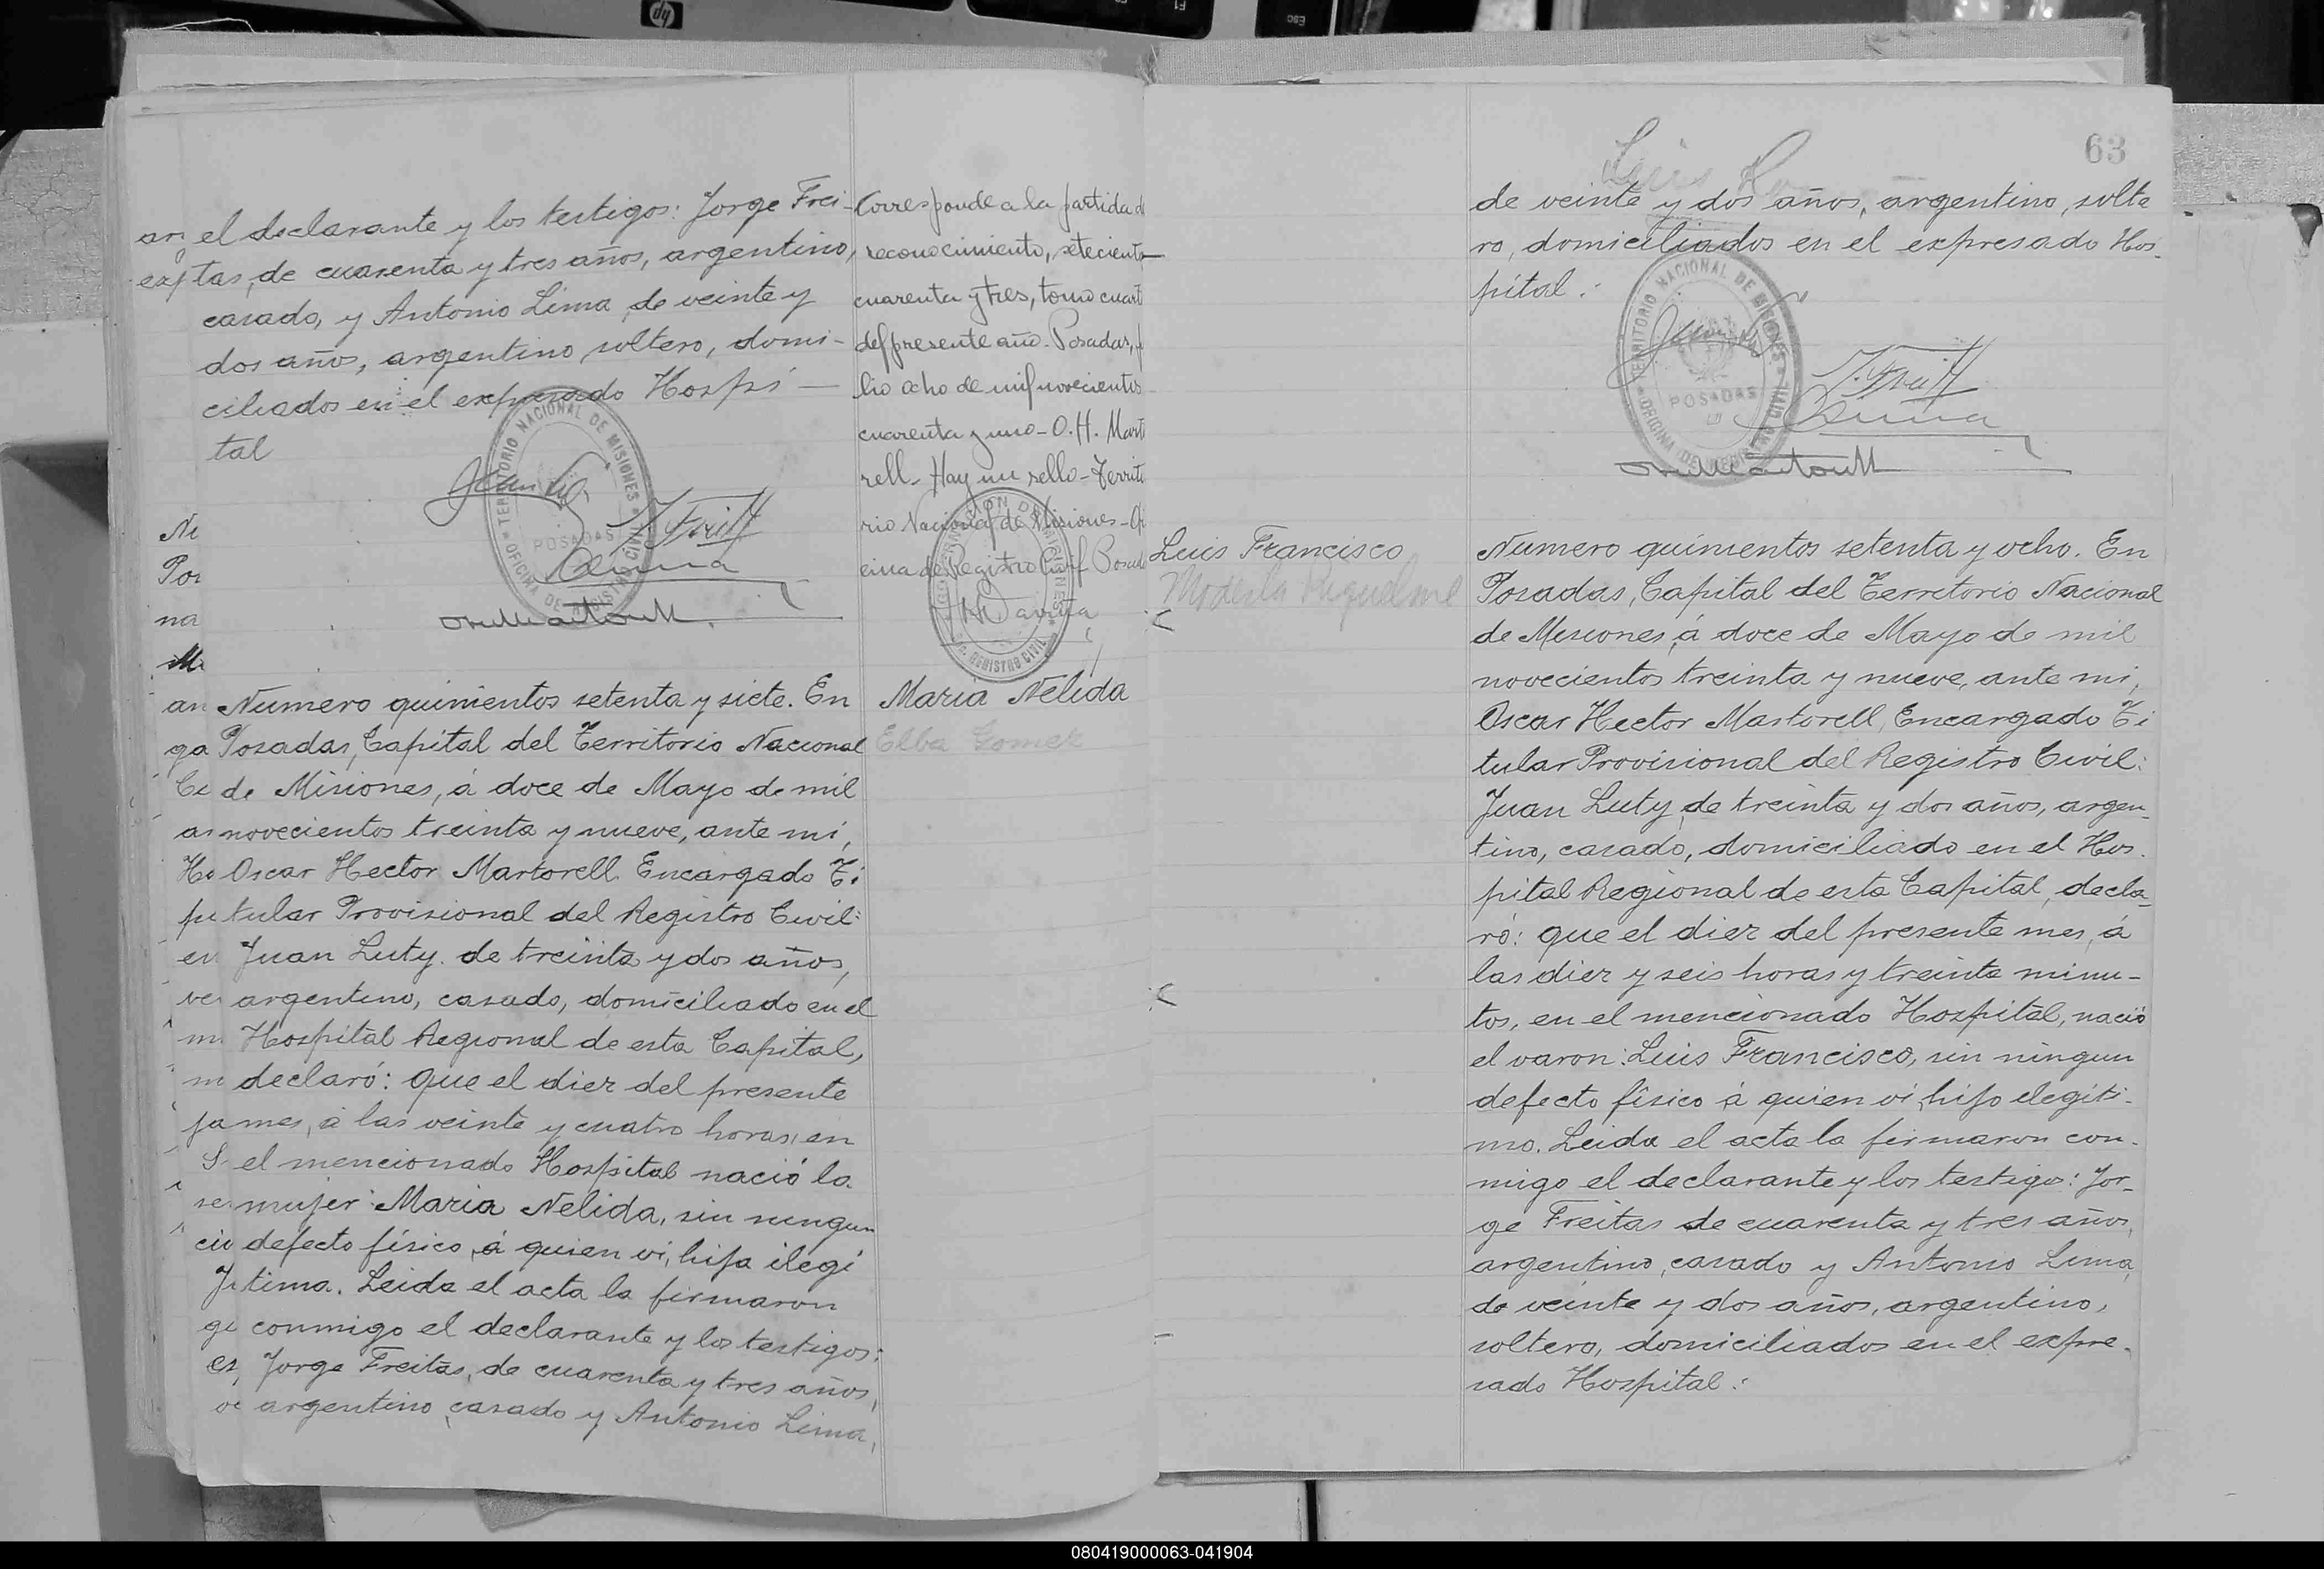 el declarante y los testigos: Jorge Frei-
tas, de cuarenta y tres años, argentino,
casado, y Antonio Lima, de veinte y
dos año, argentino, soltero, domi-
ciliados en el expresado Hospi-
tal
Corresponde a la partida d
reconocimiento, setecienta
cuarenta y tres, tomo cuart
del presente año. Posadas, j
lio ocho de mil novecientos
cuarenta y uno - O. H. Marto
rell - Hay un sello - Territo
rio Nacional de Misiones - Of
cina de Registro Civil Posad
TERRITORIO NACIONAL DE MISIONES
POSADAS
OFICINA DE REGISTRO CIVIL
Numero quinientos setenta y siete. En
Posadas, Capital del Territorio Nacional
de Misiones, á doce de Mayo de mil
novecientos treinta y nueve, ante mí,
Oscar Hector Martorell Encargado Ti
tular Provisional del Registro Civil:
Juan Luty, de treinta y dos años,
argentino, casado, domiciliado en el
Hospital Regional de esta Capital,
declaró: que el diez del presente
mes, á las veinte y cuatro horas, en
el mencionado Hospital nació la
mujer: Maria Nelida, sin ningun
defecto físico, á quien ví, hija ilegi
tima. Leida el acta la firmaron
conmigo el declarante y los testigos:
Jorge Freitas, de cuarenta y tres años,
argentino, casado y Antonio Lima,
Maria Nelida
Elba Gomez
63
de veinte y dos años, argentino, solte
ro, domiciliados en el expresado Hos-
pital:
TERRITORIO NACIONAL DE MISIONES
POSADAS
OFICINA DE REGISTRO CIVIL
Luis Francisco
Modesta Riquelme
Numero quinientos setenta y ocho. En
Posadas, Capital del Territorio Nacional
de Misiones, á doce de Mayo de mil
novecientos treinta y nueve, ante mi,
Oscar Hector Martorell, Encargado Ti
tular Provisional del Registro Civil:
Juan Luty, de treinta y dos años, argen-
tino, casado, domiciliado en el Hos-
pital Regional de esta Capital, decla-
ró: que el diez del presente mes, á
las diez y seis horas y treinta minu-
tos, en el mencionado Hospital, nació
el varon: Luis Francisco, sin ningun
defecto físico á quien ví, hijo ilegiti-
mo. Leida el acta la firmaron con-
migo el declarante y los testigos: Jor-
ge Freitas de cuarenta y tres años,
argentino, casado y Antonio Lima,
de veinte y dos años, argentino,
soltero, domiciliados en el expre-
sado Hospital:
080419000063-041904